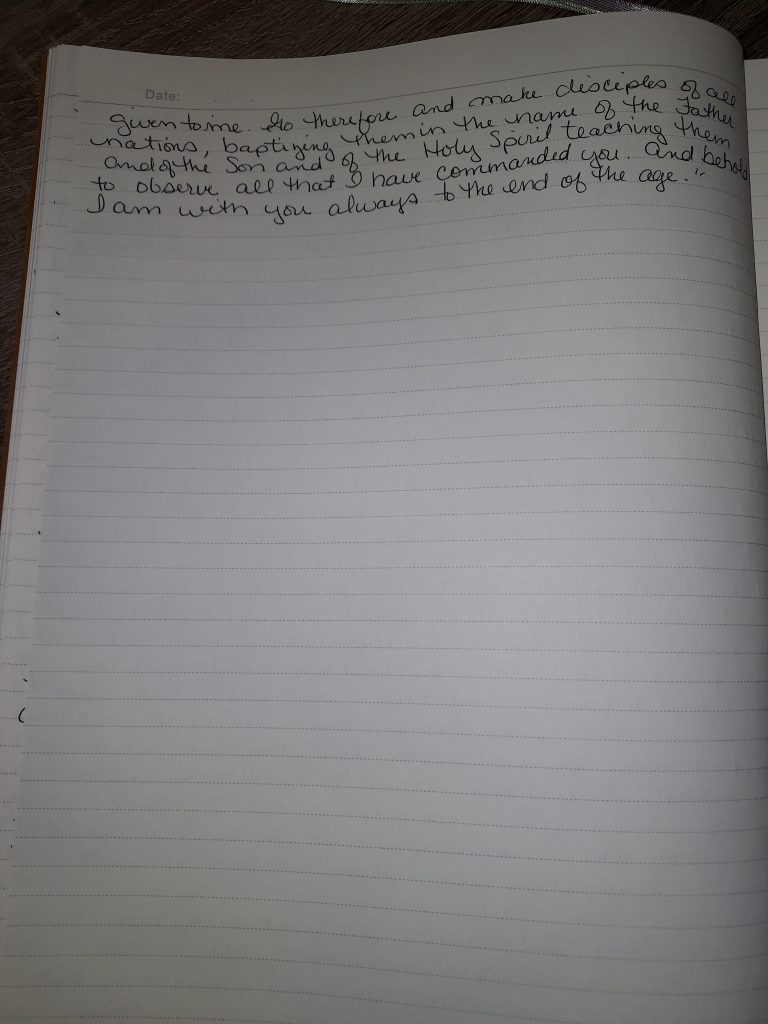 Date:
given to me. Go therefore and make disciples of all
nations, baptizing them in the name of the Father
and of the Son and of the Holy Spirit teaching them
to observe all that I have commanded you. And behold
I am with you always to the end of the age."